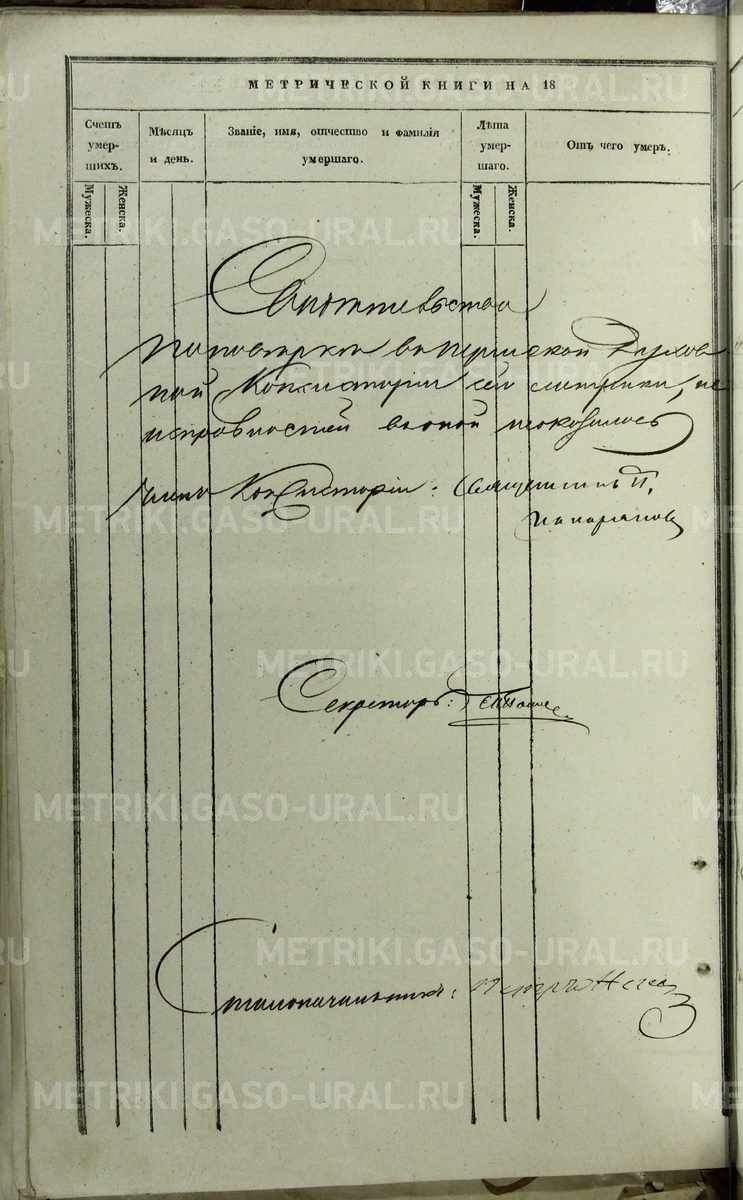 МЕТРИЧЕСКОЙ КНИГИ НА 18
Счетъ умер-шихъ.
Мужеска.
Женска.
Мѣсяцъ и день.
Званіе, имя, отчество и фамилія умершаго.
Лѣта умер-шаго.
Мужеска.
Женска.
Отъ чего умеръ.
Свидѣтельство
По повѣркѣ въ Пермской Духов
ной Консисторіи сей метрики, не
исправностей въ оной не оказалось
Членъ Консисторіи: Священникъ П.
Секретарь:
Столоначальникъ:
METRIKI.GASO-URAL.RU